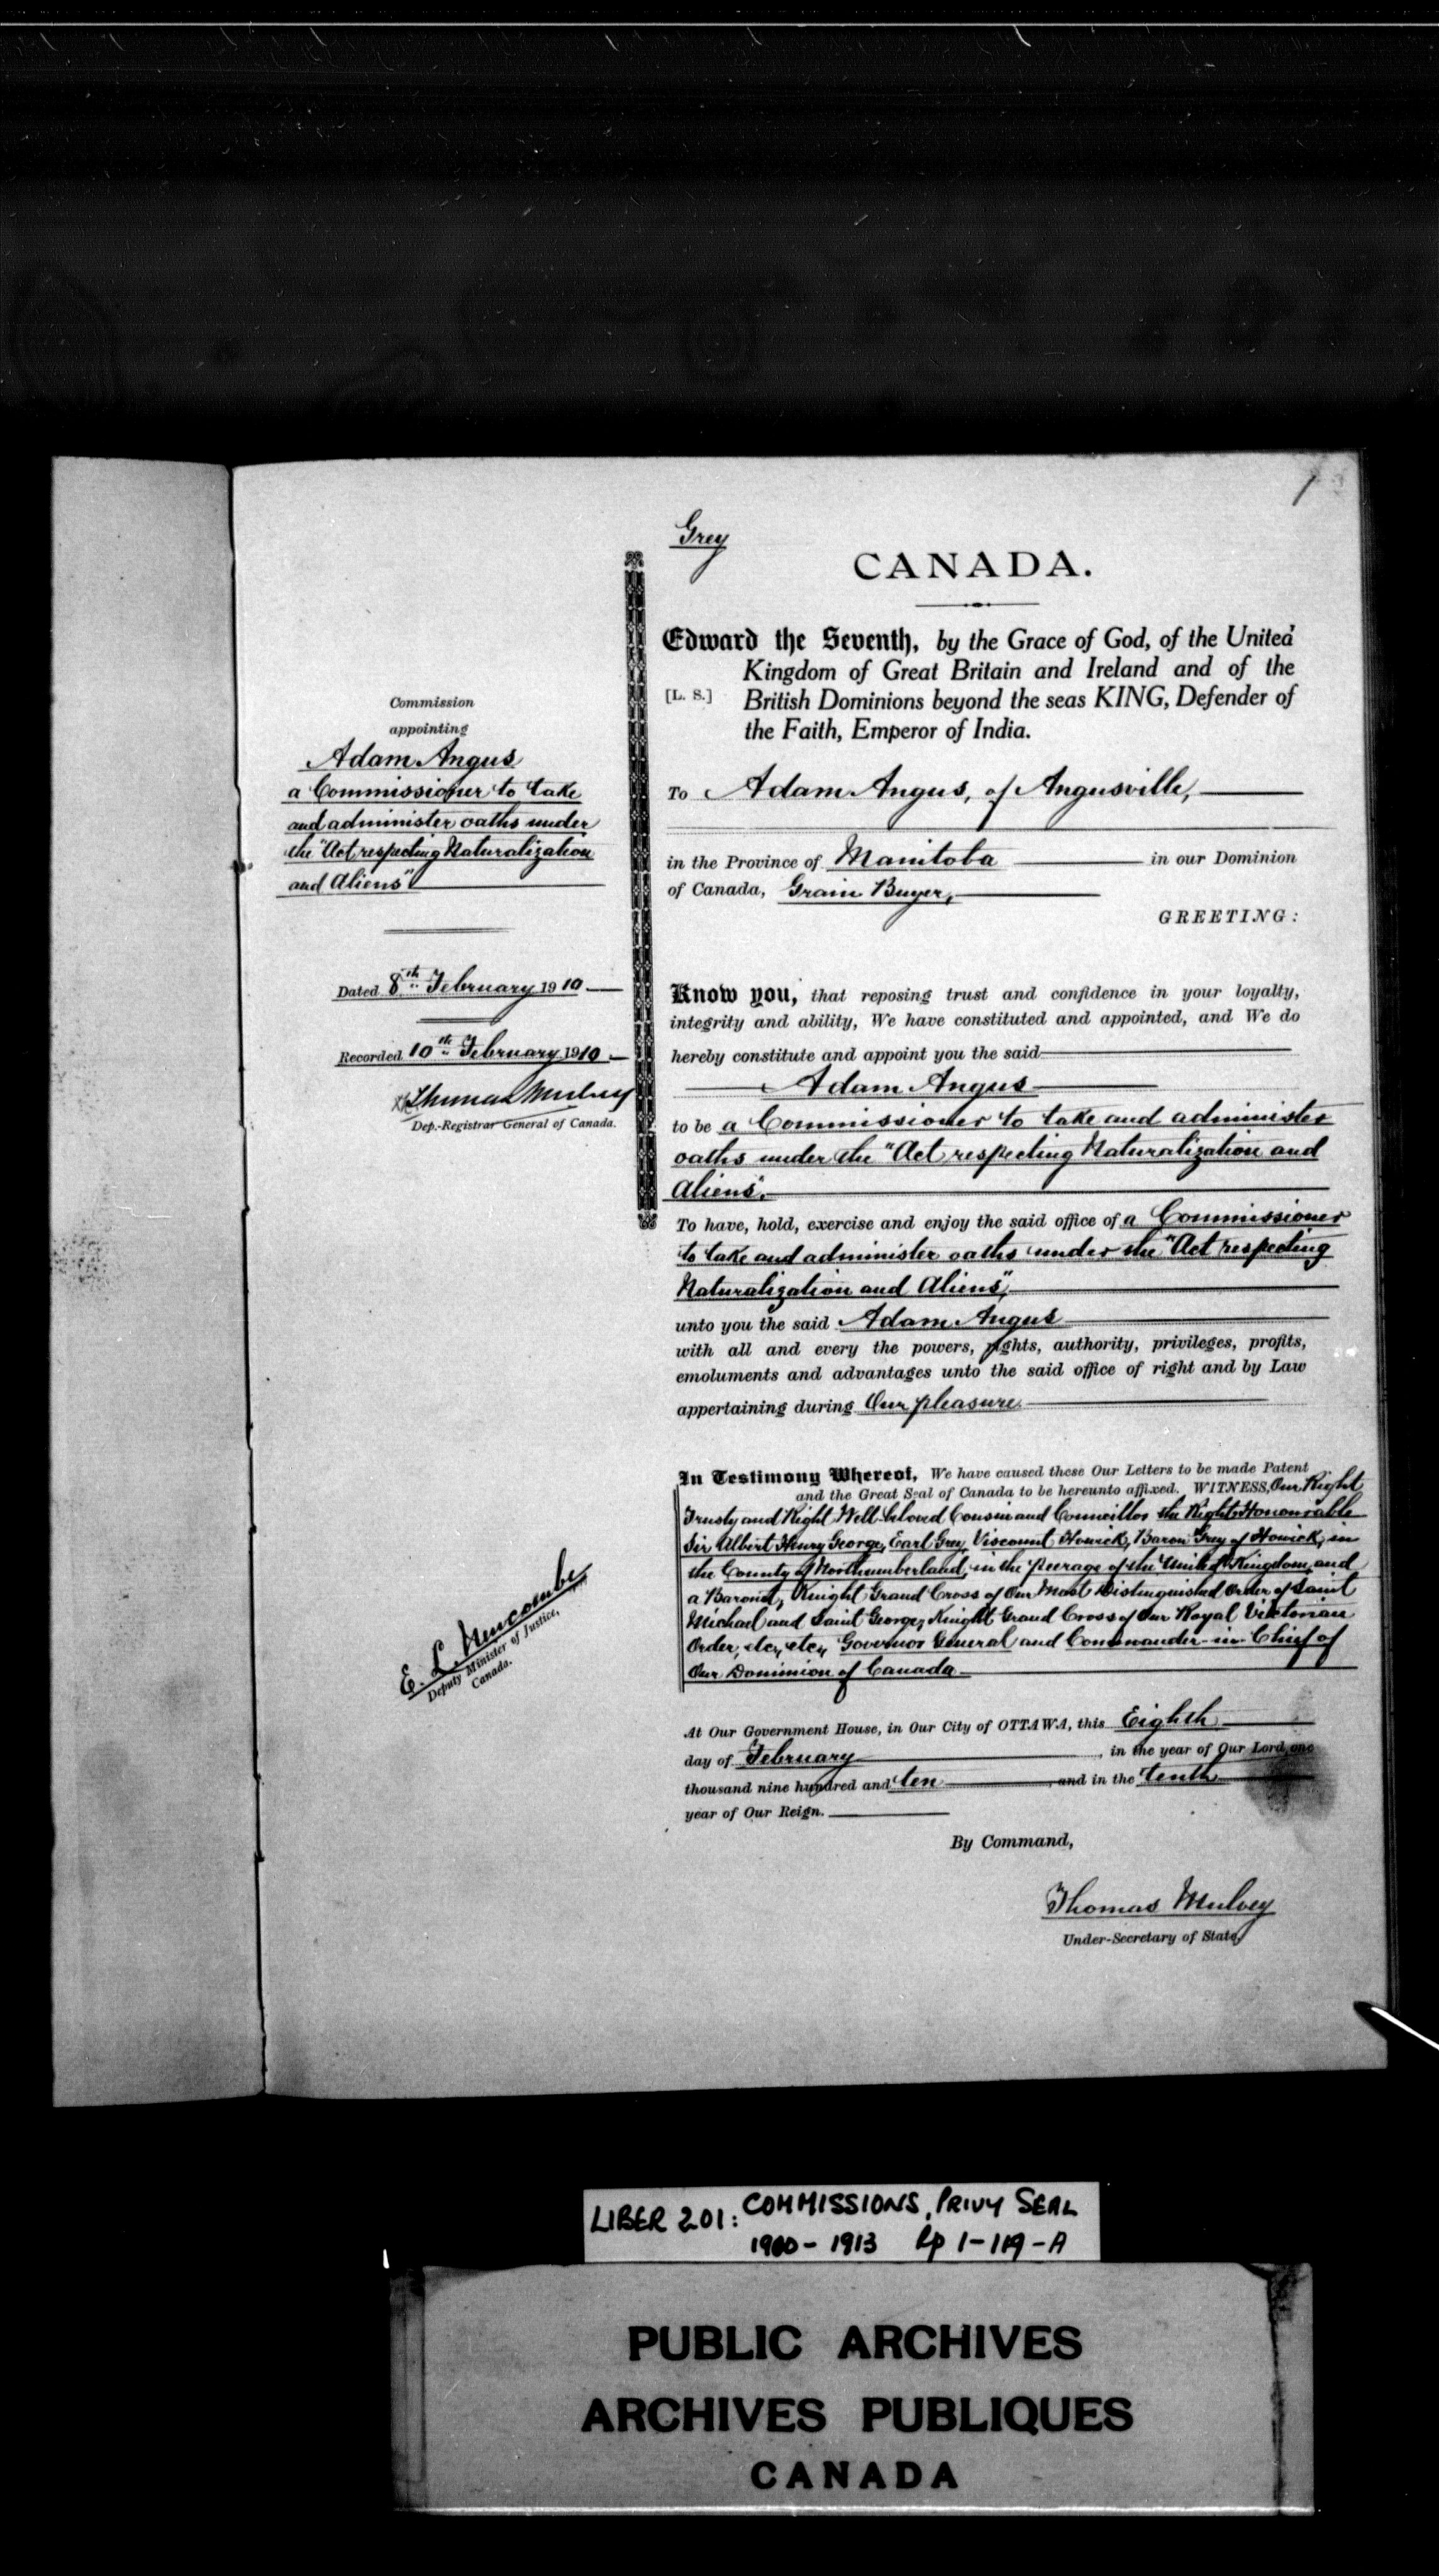 1
Grey
CANADA.
Edward the Seventh, by the Grace of God, of the United
Kingdom of Great Britain and Ireland and of the
[L. S.] British Dominions beyond the seas KING, Defender of
the Faith, Emperor of India.
To Adam Angus, of Angusville,
in the Province of Manitoba in our Dominion
of Canada, Grain Buyer,
GREETING:
Know you, that reposing trust and confidence in your loyalty,
integrity and ability, We have constituted and appointed, and We do
hereby constitute and appoint you the said
Adam Angus
to be a Commissioner to take and administer
oaths under the "Act respecting Naturalization and
Aliens".
To have, hold, exercise and enjoy the said office of a Commissioner
to take and administer oaths under the "Act respecting
Naturalization and Aliens",
unto you the said Adam Angus
with all and every the powers, rights, authority, privileges, profits,
emoluments and advantages unto the said office of right and by Law
appertaining during Our pleasure.
In Testimony Whereof, We have caused these Our Letters to be made Patent
and the Great Seal of Canada to be hereunto affixed. WITNESS, Our Right
Trusty and Right Well-beloved Cousin and Councillor the Right Honourable
Sir Albert Henry George, Earl Grey, Viscount Howick, Baron Grey of Howick, in
the County of Northumberland, in the Peerage of the United Kingdom, and
a Baronet, Knight Grand Cross of Our Most Distinguished Order of Saint
Michael and Saint George, Knight Grand Cross of Our Royal Victorian
Order, etc, etc, Governor General and Commander-in-Chief of
Our Dominion of Canada
At Our Government House, in Our City of OTTAWA, this Eighth
day of February, in the year of Our Lord, one
thousand nine hundred and ten, and in the tenth
year of Our Reign.
By Command,
Thomas Mulvey
Under-Secretary of State,
Commission
appointing
Adam Angus
a Commissioner to take
and administer oaths under
the "Act respecting Naturalization
and Aliens"
Dated 8th February 1910
Recorded 10th February 1910
Thomas Mulvey
Dep.-Registrar General of Canada.
E. L. Newcombe
Deputy Minister of Justice,
Canada.
LIBER 201: COMMISSIONS, PRIVY SEAL
1900-1913 Pp 1-119-A
PUBLIC ARCHIVES
ARCHIVES PUBLIQUES
CANADA